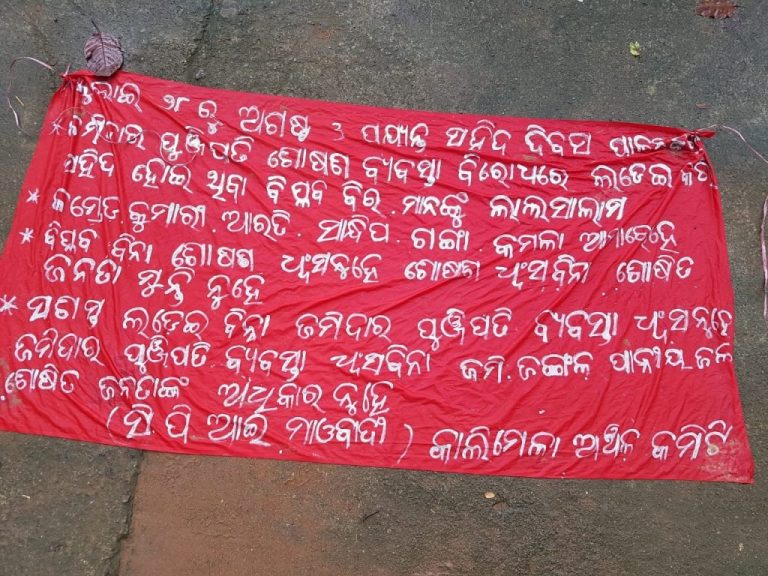 ଜୁଲାଇ ୨୮ ରୁ ଅଗଷ୍ଟ 3 ପର୍ଯ୍ୟନ୍ତ ସହିଦ ଦିବସ ପାଳନ
* ଜମିଦାର ପୁଞ୍ଜିପତି ଶୋଷଣ ବ୍ୟବସ୍ତା ବିରୋଧରେ ଲଢେଇ କରି
ସହିଦ ହୋଇ ଥିବା ବିପ୍ଳବି ବିର ମାନଙ୍କୁ ଲାଲସାଲାମ
* କମ୍ରେଡ କୁମାରୀ ଆରତି ସାନ୍ଧିପ ଗଙ୍ଗା କମଳା
* ବିପ୍ଳବ ବିନା ଶୋଷଣ ଧ୍ୱଂସନୁହେ ଶୋଷଣ ଧ୍ୱଂସବିନା ଶୋଷିତ
ଜନତା ମୁକ୍ତି ନୁହେ
* ସଶସ୍ତ୍ର ଲଢେଇ ବିନା ଜମିଦାର ପୁଞ୍ଜିପତି ବ୍ୟବସ୍ତା ଧ୍ୱଂସନୁହେ
ଜମିଦାର ପୁଞ୍ଜିପତି ବ୍ୟବସ୍ତା ଧ୍ୱଂସବିନା ଜମି ଜଙ୍ଗଲ ପାନୀୟଜଳ
ଶୋଷିତ ଜନତାଙ୍କ ଅଧିକାର ନୁହେ
(ସି ପି ଆଇ ମାଓବାଦୀ) କାଲିମେଳା ଅଞ୍ଚଳ କମିଟି